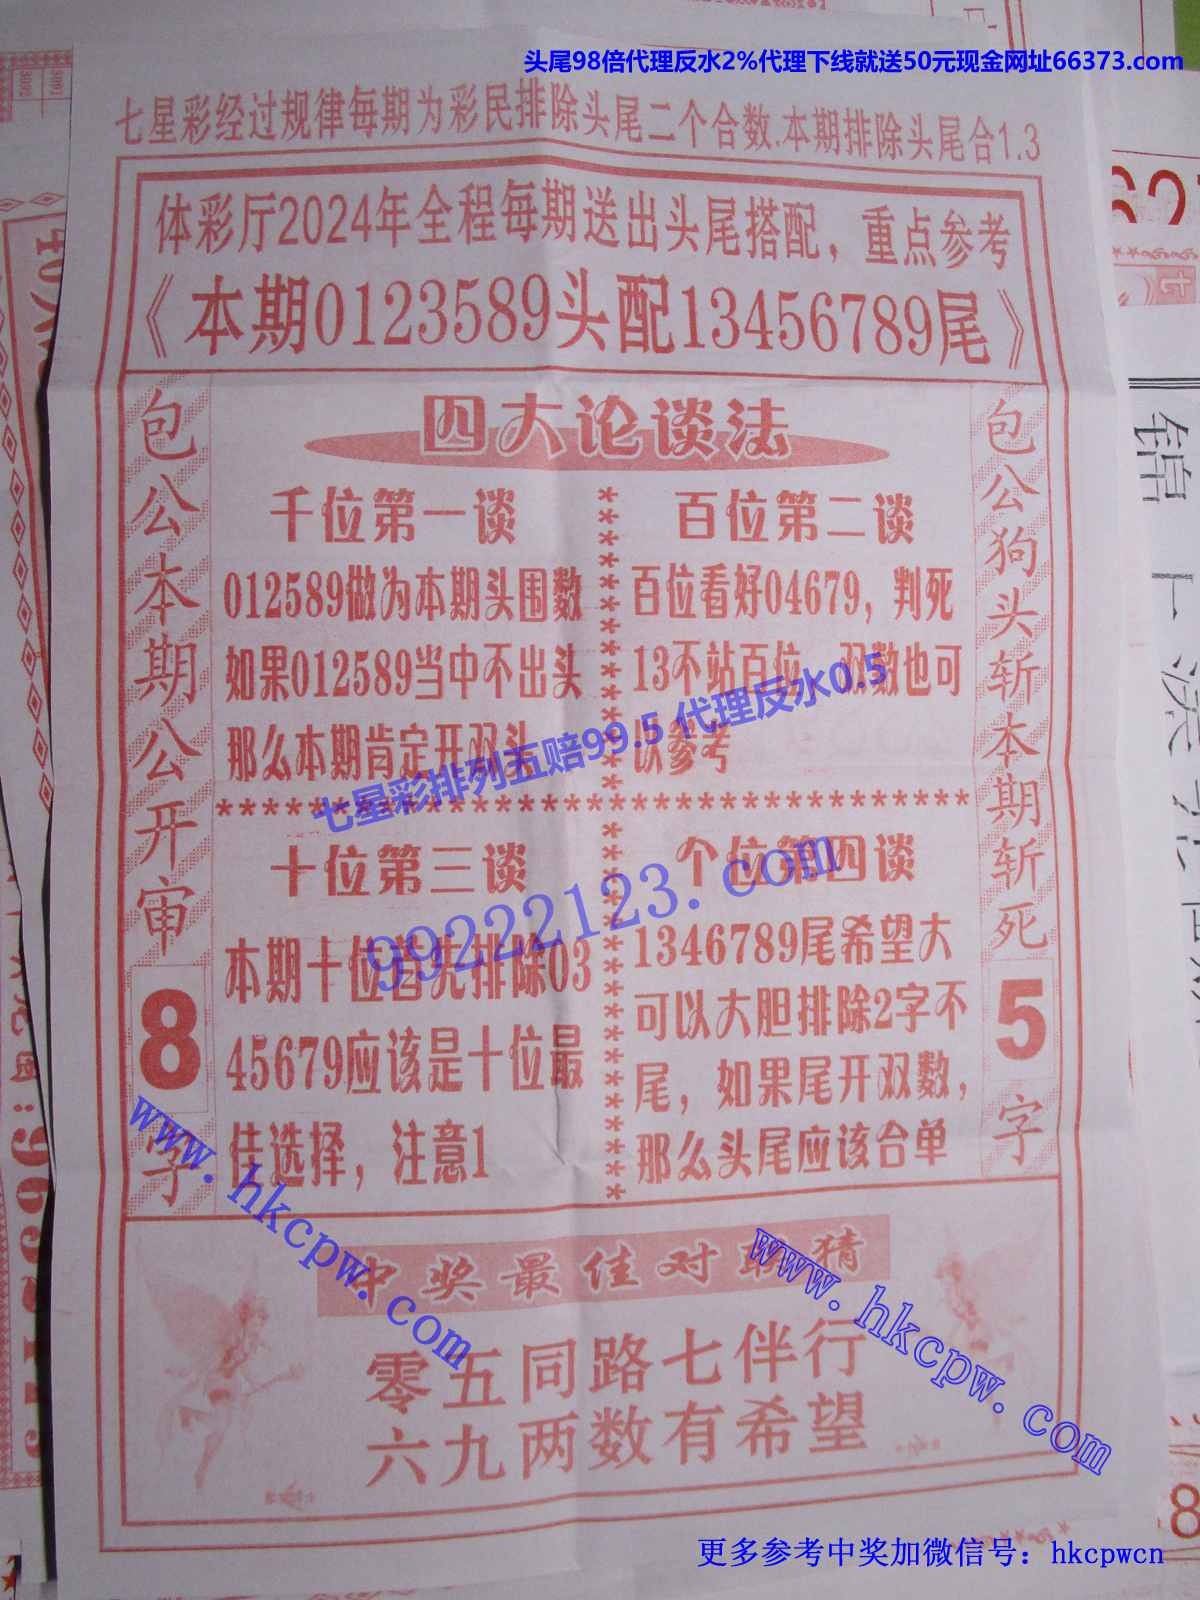 头尾98倍代理反水2%代理下线就送50元现金网址66373.com
七星彩经过规律每期为彩民排除头尾二个合数.本期排除头尾合1.3
体彩厅2024年全程每期送出头尾搭配，重点参考
《本期0123589头配13456789尾》
包公本期公开审8字
四大论谈法
千位第一谈
012589做为本期头围数
如果012589当中不出头
那么本期肯定开双头
百位第二谈
百位看好04679，判死
13不站百位，双数也可
以参考
七星彩排列五赔99.5 代理反水0.5
十位第三谈
本期十位首先排除03
45679应该是十位最
佳选择，注意1
个位第四谈
1346789尾希望大
可以大胆排除2字不
尾，如果尾开双数，
那么头尾应该合单
99222123.com
包公狗头斩本期斩死5字
www.hkcpw.com
www.hkcpw.com
中奖最佳对联猜
零五同路七伴行
六九两数有希望
更多参考中奖加微信号：hkcpwcn